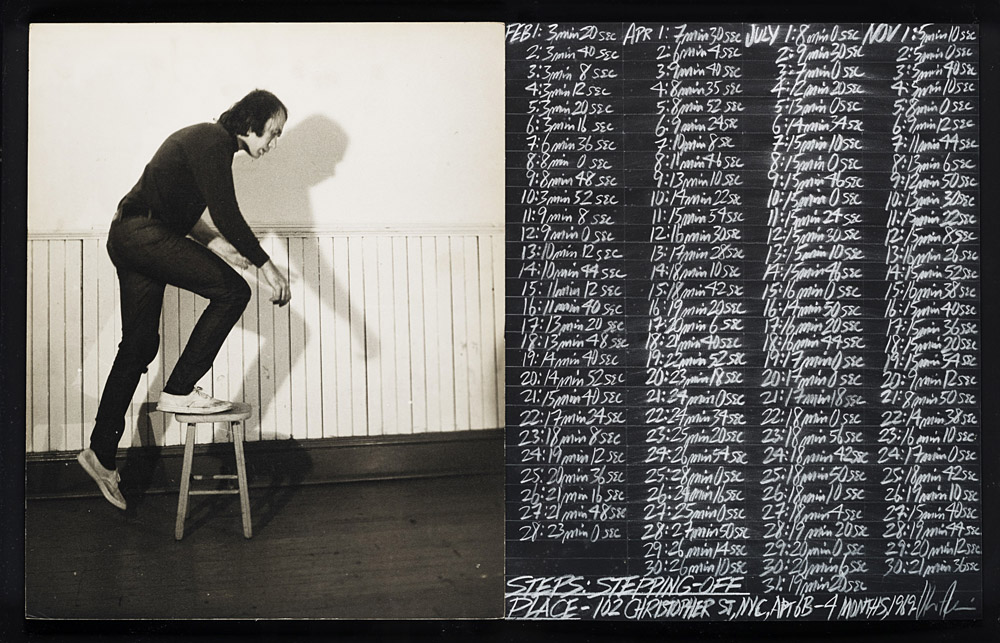 FEB 1: 3min 20 sec
2: 3min 40 sec
3: 3min 8 sec
4: 3min 12 sec
5: 3min 20 sec
6: 3min 16 sec
7: 6min 36 sec
8: 8min 0 sec
9: 8min 48 sec
10: 3min 52 sec
11: 9min 8 sec
12: 9min 0 sec
13: 10min 12 sec
14: 10min 44 sec
15: 11min 12 sec
16: 11min 40 sec
17: 13min 20 sec
18: 13min 48 sec
19: 14min 40 sec
20: 14min 52 sec
21: 15min 40 sec
22: 17min 24 sec
23: 18min 8 sec
24: 19min 12 sec
25: 20min 36 sec
26: 21min 16 sec
27: 21min 48 sec
28: 23min 0 sec
APR 1: 7min 30 sec
2: 6min 4 sec
3: 9min 40 sec
4: 8min 35 sec
5: 8min 52 sec
6: 9min 24 sec
7: 10min 8 sec
8: 11min 46 sec
9: 13min 10 sec
10: 14min 22 sec
11: 15min 54 sec
12: 16min 30 sec
13: 17min 28 sec
14: 18min 10 sec
15: 18min 42 sec
16: 19min 20 sec
17: 20min 6 sec
18: 21min 40 sec
19: 22min 52 sec
20: 23min 18 sec
21: 24min 0 sec
22: 24min 34 sec
23: 25min 20 sec
24: 26min 54 sec
25: 28min 0 sec
26: 29min 16 sec
27: 25min 0 sec
28: 27min 50 sec
29: 26min 14 sec
30: 26min 10 sec
JULY 1: 8min 0 sec
2: 9min 30 sec
3: 7min 0 sec
4: 12min 20 sec
5: 13min 0 sec
6: 14min 34 sec
7: 15min 10 sec
8: 15min 0 sec
9: 15min 46 sec
10: 15min 0 sec
11: 15min 24 sec
12: 15min 30 sec
13: 15min 10 sec
14: 15min 46 sec
15: 16min 0 sec
16: 14min 50 sec
17: 16min 20 sec
18: 16min 44 sec
19: 17min 0 sec
20: 17min 0 sec
21: 17min 18 sec
22: 18min 0 sec
23: 18min 56 sec
24: 18min 42 sec
25: 18min 50 sec
26: 18min 10 sec
27: 18min 4 sec
28: 19min 20 sec
29: 20min 0 sec
30: 20min 6 sec
31: 19min 20 sec
NOV 1: 5min 10 sec
2: 5min 0 sec
3: 5min 40 sec
4: 5min 10 sec
5: 8min 0 sec
6: 7min 12 sec
7: 11min 44 sec
8: 13min 6 sec
9: 12min 50 sec
10: 13min 30 sec
11: 15min 22 sec
12: 15min 8 sec
13: 16min 26 sec
14: 15min 52 sec
15: 16min 38 sec
16: 15min 40 sec
17: 15min 36 sec
18: 15min 20 sec
19: 15min 54 sec
20: 7min 12 sec
21: 8min 50 sec
22: 14min 38 sec
23: 16min 10 sec
24: 17min 0 sec
25: 18min 42 sec
26: 19min 10 sec
27: 15min 40 sec
28: 19min 44 sec
29: 20min 12 sec
30: 21min 36 sec
STEPS: STEPPING-OFF
PLACE - 102 CHRISTOPHER ST, NYC, APT 6B - 4 MONTHS, 1969